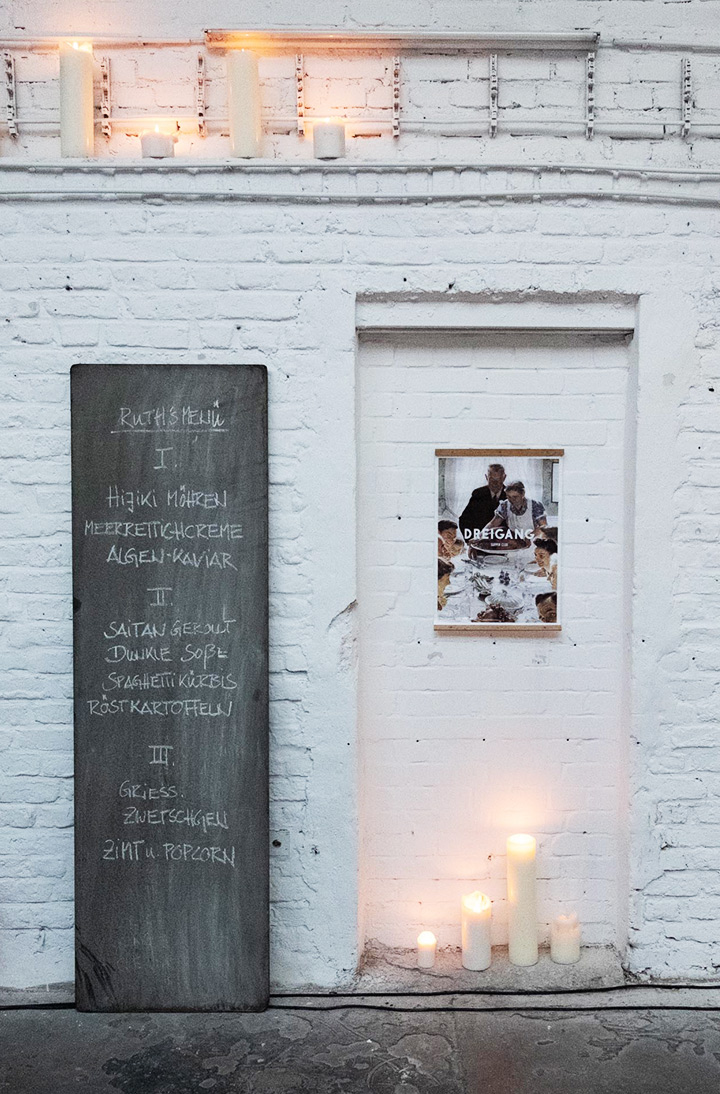 RUTH'S MENÜ
I.
HIJIKI MÖHREN
MEERRETTICHCREME
ALGEN-KAVIAR
II.
SAITAN GEROLLT
DUNKLE SOßE
SPAGHETTIKÜRBIS
RÖSTKARTOFFELN
III.
GRIESS.
ZWETSCHGEN
ZIMT u. POPCORN
DREIGANG
SUPPER CLUB